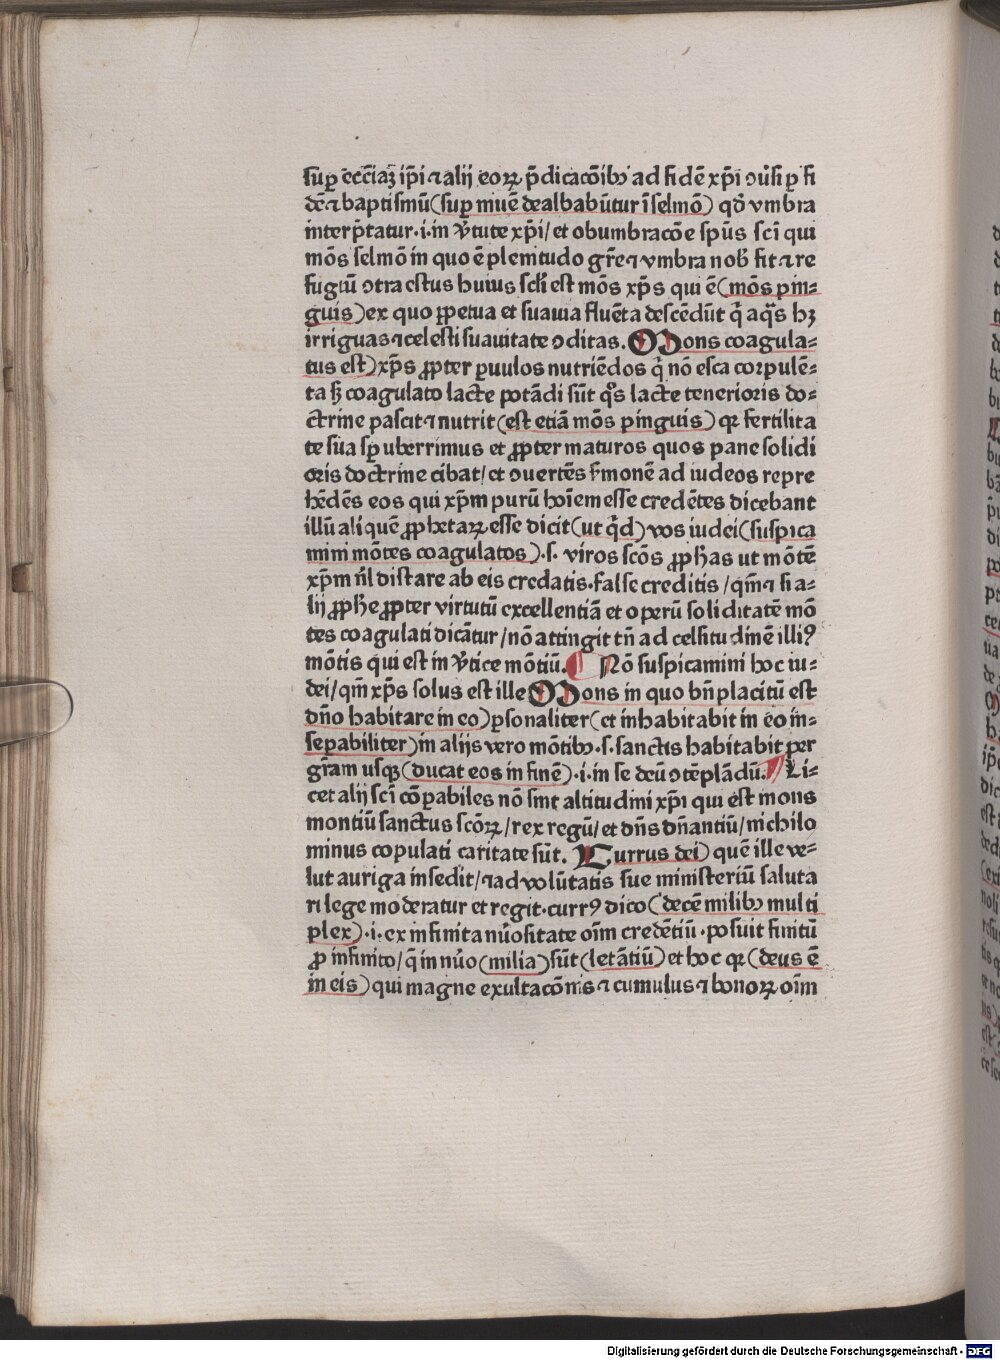 sup eccĩaʒ ip̃i ⁊ alij eoꝝ p̃dicacõibꝰ ad fidẽ xp̃i ↄũsi ꝑ fi
dẽ ⁊ baptismũ (suꝑ niuẽ dealbabũtur ĩ selmõ) qď vmbra
interp̃tatur .i. in v̓tute xp̃i / et obumbracõe sp̃us sc̃i qui
mõs selmõ in quo ẽ plenitudo gr̃e ⁊ vmbra nob̓ fit ⁊ re
fugiũ ↄtra estus huius scl̓i est mõs xp̃s qui ẽ (mõs pin⸗
guis) ex quo ꝑpetua et suauia fluẽta descẽdũt q̃ aq̃s hʒ
irriguas ⁊ celesti suauitate ↄditas. Mons coagula⸗
tus est) xp̃s ꝓpter paruulos nutriẽdos q̃ nõ esca corpulẽ⸗
ta sʒ coagulato lacte potãdi sũt q̃s lacte tenerioris do⸗
ctrine pascit ⁊ nutrit (est etiã mõs pinguis) qꝛ fertilita
te sua sp̃ uberrimus et ꝓpter maturos quos pane solidi
oris doctrine cibat / et ↄuertẽs s̓monẽ ad iudeos repre
hẽdẽs eos qui xp̃m purũ hoĩem esse credẽtes dicebant
illũ aliquẽ ꝓphetaꝝ esse dicit (ut q̃d) vos iudei (suspica
mini mõtes coagulatos) .s. viros scõs ꝓph̓as ut mõtẽ
xp̃m nĩl distare ab eis credatis. false creditis / qm̃ ⁊ si a⸗
lij ꝓph̓e ꝓpter virtutũ excellentiã et operũ soliditatẽ mõ
tes coagulati dicãtur / nõ attingit tñ ad celsitudinẽ illiꝰ
mõtis qui est in v̓tice mõtiũ. ¶ Nõ suspicamini hoc iu⸗
dei / qm̃ xp̃s solus est ille Mons in quo bñplacitũ est
dño habitare in eo) ꝑsonaliter (et inhabitabit in eo in⸗
seꝑabiliter) in alijs vero mõtibꝰ .s. sanctis habitabit per
gr̃am usqꝫ (ducat eos in finẽ) .i. in se deũ ↄtẽplãdũ. ¶ Li⸗
cet alij sc̃i cõꝑabiles nõ sint altitudini xp̃i qui est mons
montiũ sanctus scõꝝ / rex regũ / et dñs dñantiũ / nichilo
minus copulati caritate sũt. Currus dei) quẽ ille ve⸗
lut auriga insedit / ⁊ ad volũtatis sue ministeriũ saluta
ri lege moderatur et regit. currꝰ dico (decẽ milibꝰ multi
plex) .i. ex infinita nũositate oĩm credẽtiũ . posuit finitũ
ꝓ infinito / q̃ in nũo (milia) sũt (letãtiũ) et hoc qꝛ (deus ẽ
in eis) qui magne exultacõnis ⁊ cumulus ⁊ bonoꝝ oĩm
Digitalisierung gefördert durch die Deutsche Forschungsgemeinschaft - DFG